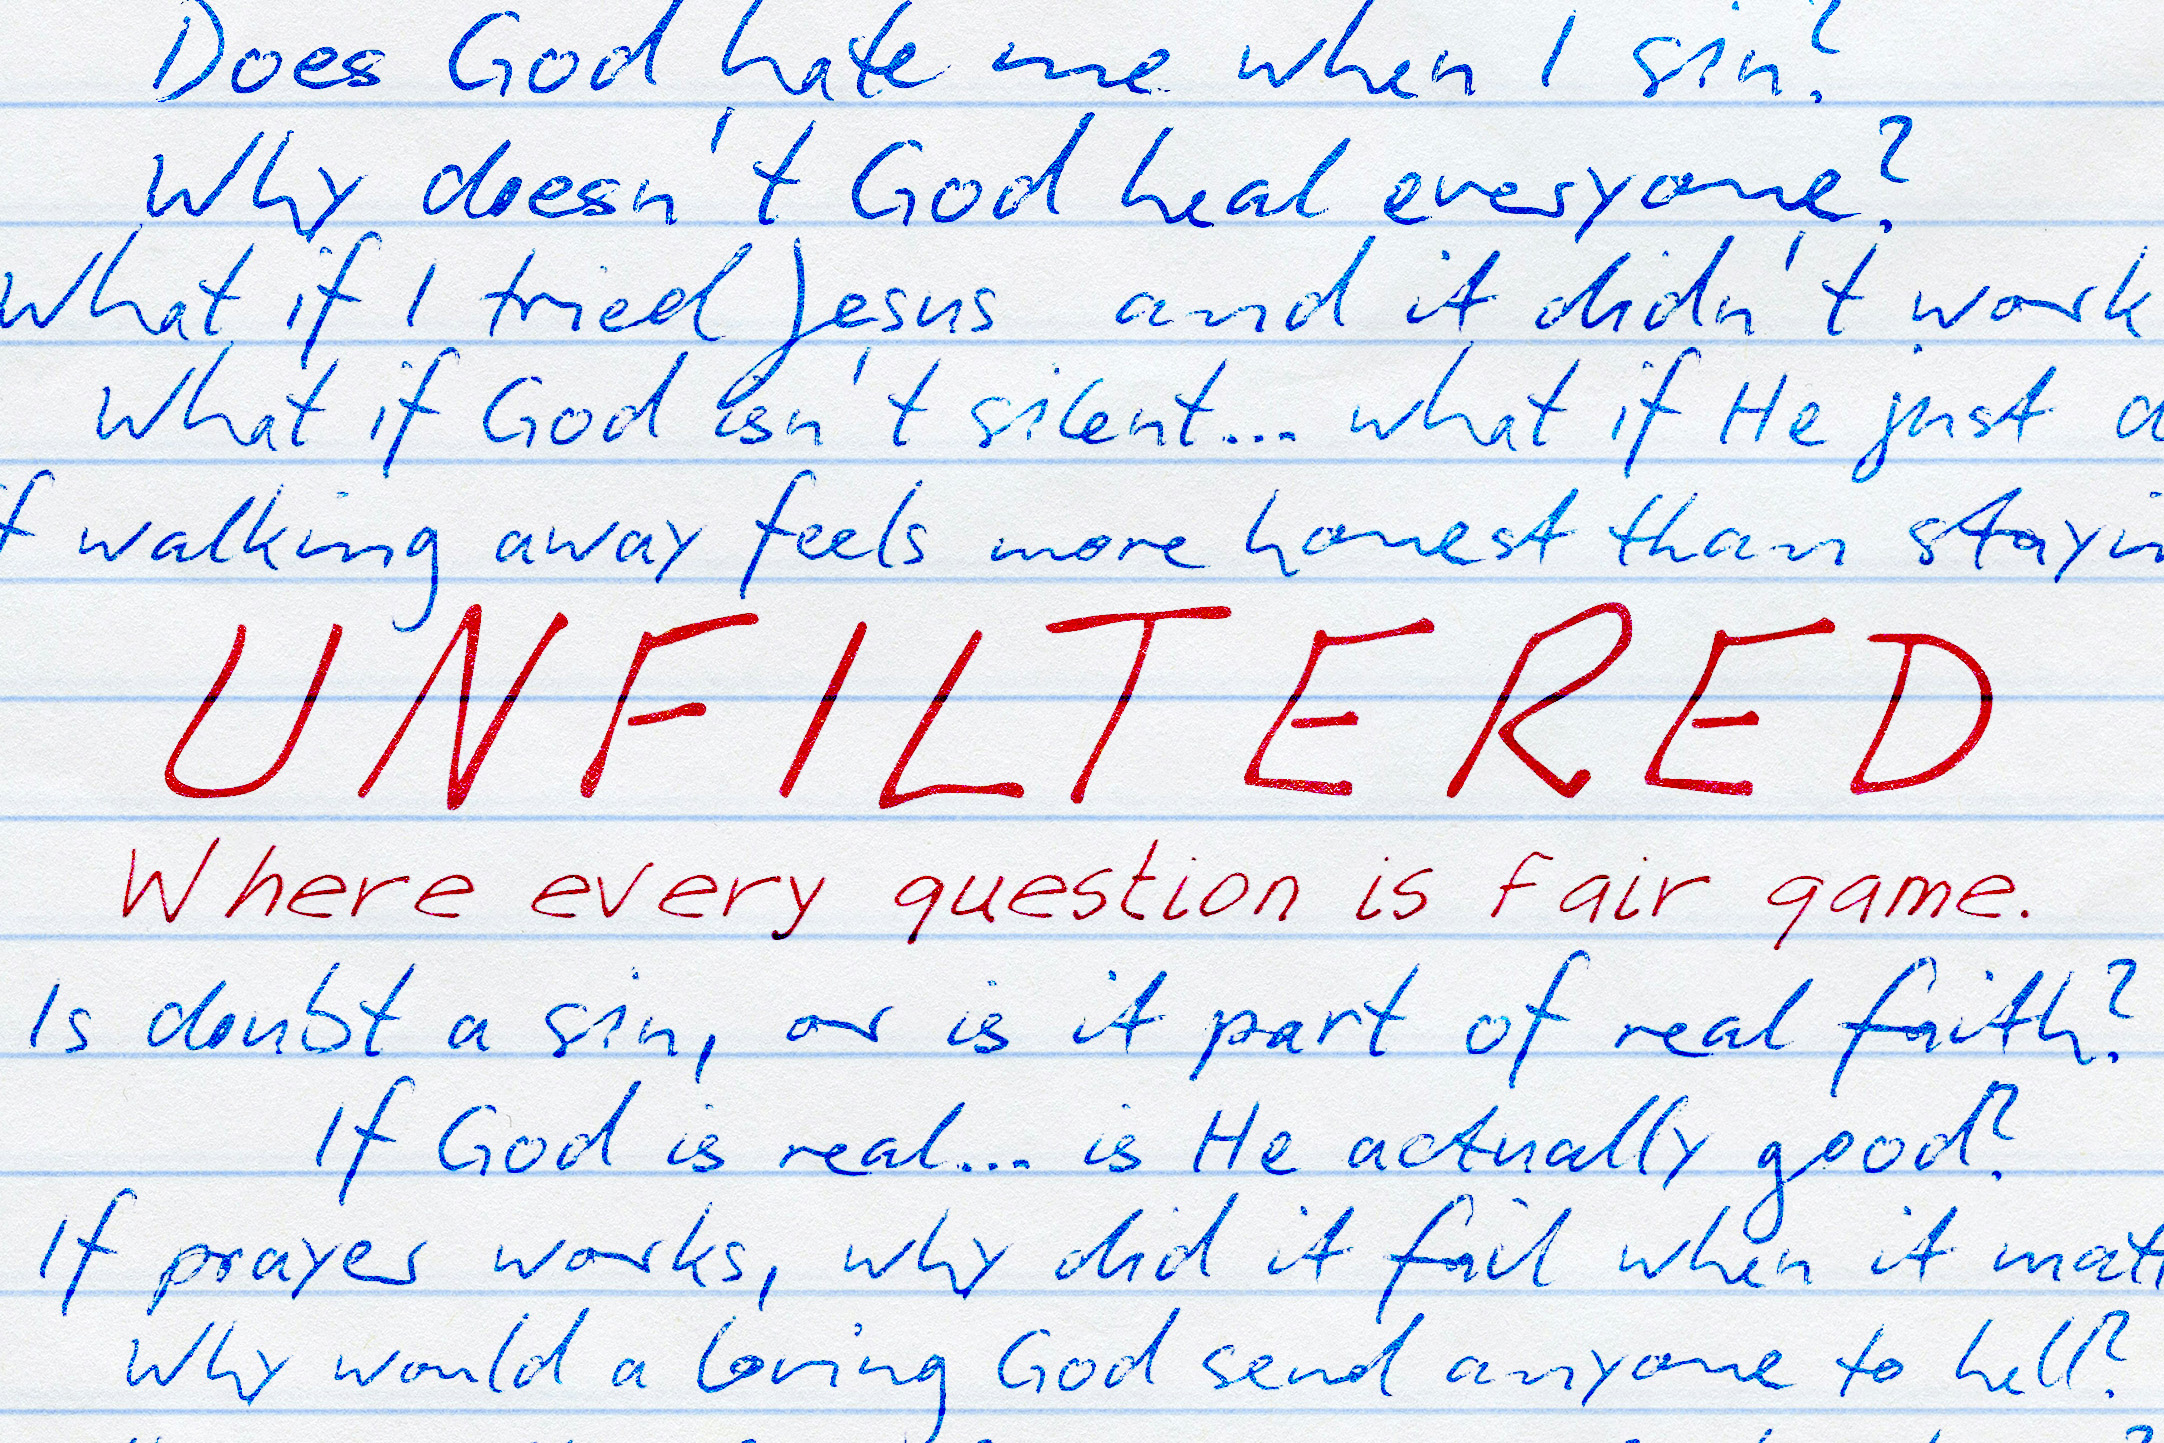 Does God hate me when I sin?
Why doesn't God heal everyone?
What if I tried Jesus and it didn't work
What if God isn't silent... what if He just
walking away feels more honest than
UNFILTERED
Where every question is fair game.
Is doubt a sin, or is it part of real faith?
If God is real... is He actually good?
If prayer works, why did it fail when it
Why would a loving God send anyone to hell?